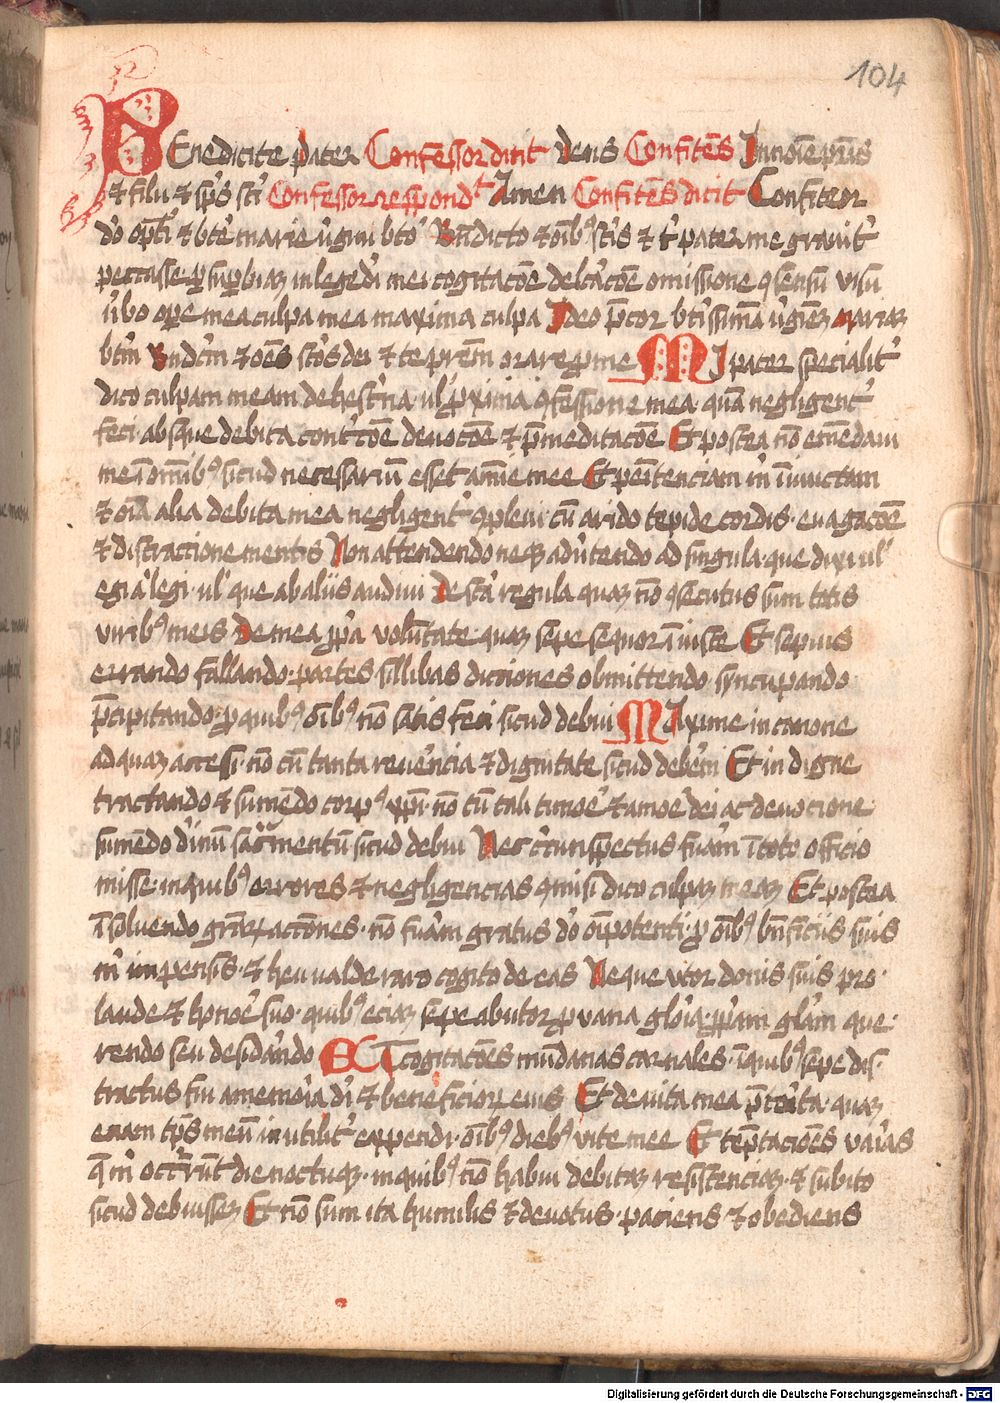 104
Benedicite pater Confessor dicit deus Confitēs In noīe pr̄is
& filii & sp̄s sc̄i Confessor respond't Amen Confitēs dicit Confiteor
dō op̄ti & bt̄e marie v̄gini bt̄o Bn̄dicto & oīb9 sc̄is & t' pater me grauit'
peccasse p suꝑbiaꝫ in lege dī mei cogitac̄oe delc̄ac̄oe omissione ꝯsensu visu
v̄bo oꝑe mea culpa mea maxima culpa Ideo p̄cor bt̄issimā v̄gīeꝫ mariaꝫ
bt̄m Bn̄dc̄m & oēs sc̄os dei & te pr̄em orare ꝓ me MJ pater specialit'
dico culpam meam de hest̄na ul' ꝓxima ꝯfessione mea quā negligent'
feci absque debita cont'c̄oe deuoc̄oe & p̄meditac̄oe Et postea nō emēdaui
me ī omīb9 sicud necessariū esset anīe mee Et penītenciam m' īiunctam
& oīa alia debita mea negligent' ꝯpleui cū arido tepide cordis euagac̄oe
& distractione mentis Non attendendo neqꝫ adu'tendo ad singula que dixi ul'
legi ul' que ab aliis audiui De sc̄a regula quaꝫ nō ꝯsecutus sum totis
virib9 meis De mea ꝓp̄a volūtate quaꝫ sepe sequor īiuste Et sepius
errando fallando partes sillibas dictiones obmittendo syncupando
p̄cipitando ꝓ quib9 oīb9 nō satis feci sicud debui MAxime in canone
ad quaꝫ accessi nō cū tanta reuēncia & dignitate sicud debēm Et indigne
tractando & sumēdo corp9 xp̄i nō cū tali timoē & amoē dei ac deuocione
sumēdo diuinū sacramentū sicud debui Nec c'cunspectus fuām ī toto officio
misse in quib9 errores & negligencias ꝯmisi dico culpaꝫ meaꝫ Et postea
ī soluendo grāꝝ actōnes nō fuām gratus dō oīpotenti ꝓ oīb9 bn̄ficiis suis
m' impensis & heu valde raro cogito de eas Neque vtor donis suis pro
laude & honoē suo quib9 eciaꝫ sepe abutor ꝓ vana glōia ꝓp̄am glām que
rendo seu desidāndo ET cogitac̄oes mūdanas carnales ī quib9 sepe dis
tractus fui a memoīa dī & beneficioꝝ eius Et de uita mea p̄tc̄ita quaꝫ
etiam tp̄s meū inutilit' expendi oīb9 dieb9 vite mee Et tēptacioēs vaīas
q̄ m' occr̄unt die noctuqꝫ in quib9 nō habui debitaꝫ resistenciaꝫ & subito
sicud debuisseꝫ Et nō sum ita humilis & deuotus paciens & obediens
Digitalisierung gefördert durch die Deutsche Forschungsgemeinschaft - DFG